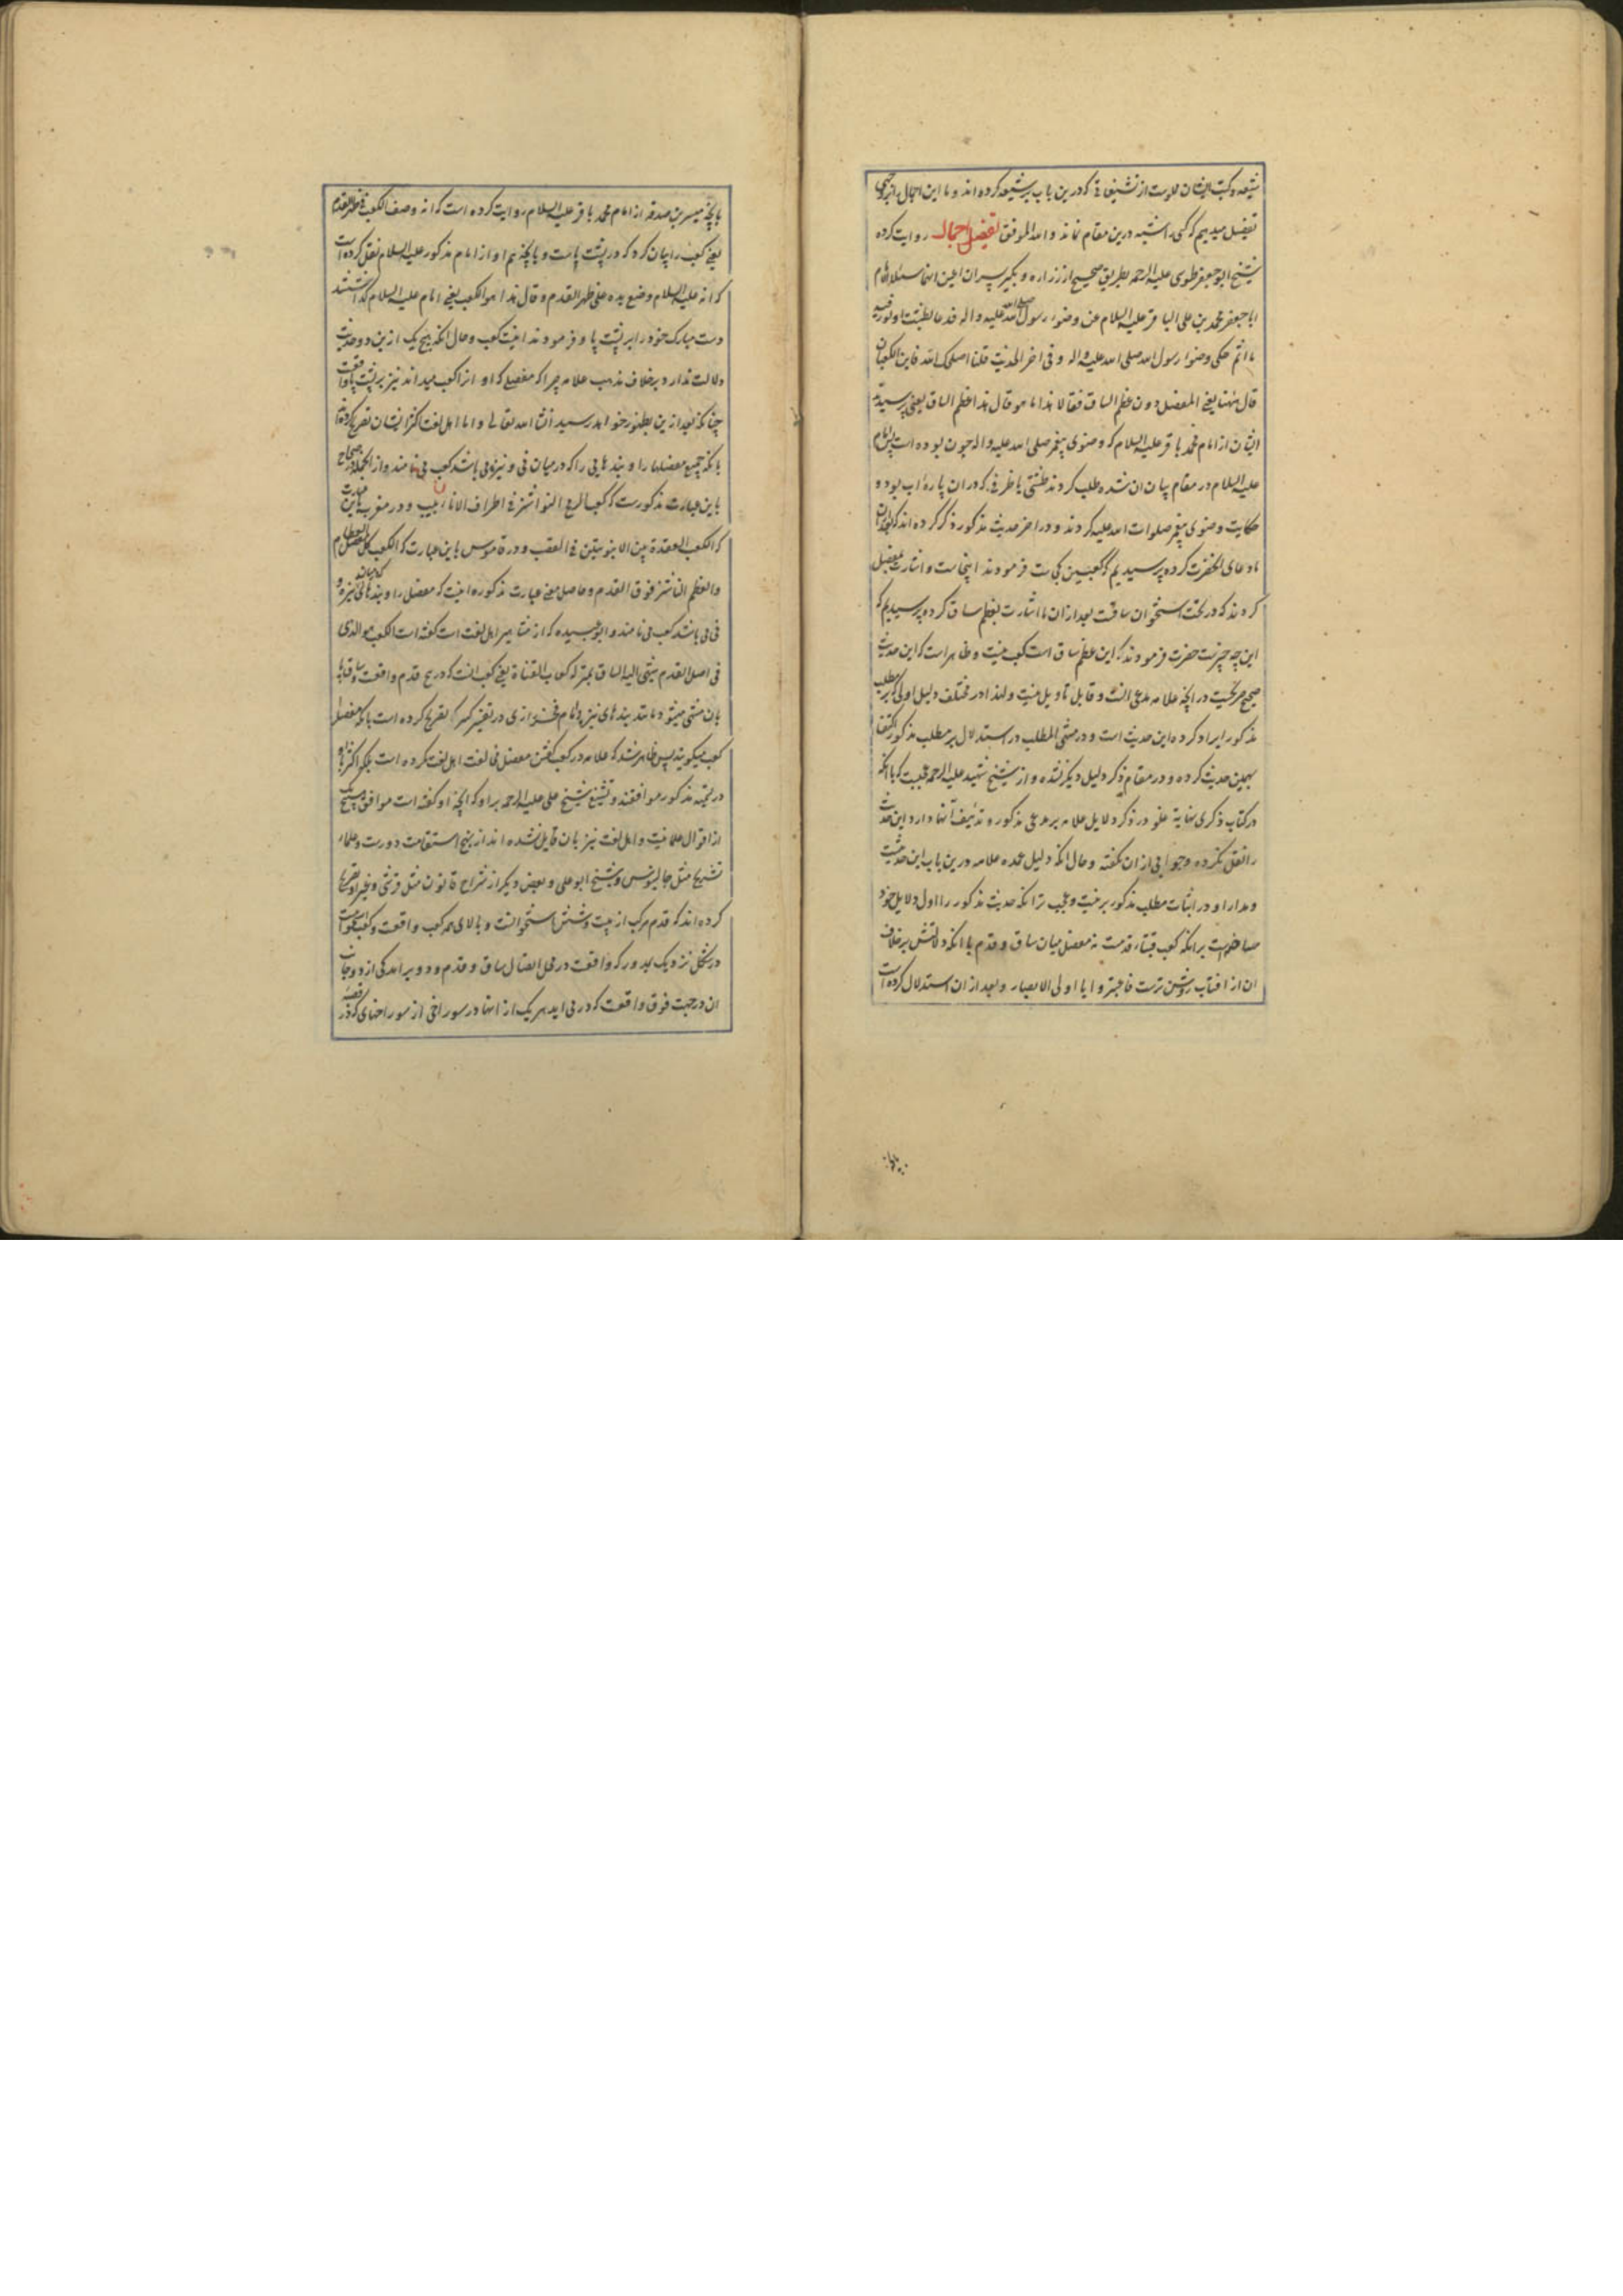 شیعه و کتب ایشان مملوست از تشنیعاتی که درین باب بر شیعه کرده‌اند و ما این اجمال را بروجهی
تفصیل میدهیم که کسی را شبهه درین مقام نماند و الله الموفق تفصیل اجمال روایت کرده
شیخ ابو جعفر طوسی علیه الرحمه بطریق صحیح از زراره و بکیر پسران اعین انهما سئلا
ابا جعفر محمد بن علی الباقر علیه السلام عن وضوء رسول الله صلی الله علیه و اله فدعا بطشت او تور فیه
ماء ثم حکی وضوء رسول الله صلی الله علیه و اله و فی اخر الحدیث قلنا اصلحک الله فاین الکعبان
قال ههنا یعنی المفصل دون عظم الساق فقالا هذا ما هو قال هذا عظم الساق یعنی پرسیدند
ایشان از امام محمد باقر علیه السلام که وضوی پیغمبر صلی الله علیه و اله چون بوده است پس امام
علیه السلام در مقام بیان ان شده طلب کردند طشتی یا ظرفی که در ان پاره اب بود و
حکایت وضوی پیغمبر صلوات الله علیه کردند و در اخر حدیث مذکور ذکر کرده‌اند که بعد از ان
ما دعای انحضرت کرده پرسیدیم که کعبین کجاست فرمودند اینجاست و اشارت بمفصل
کردند که در تحت استخوان ساقست بعد از ان ما اشارت بعظم ساق کرده پرسیدیم که
این چه چیزست حضرت فرمودند که این عظم ساق است کعب نیست و ظاهر است که این حدیث
صحیح صریحست در انچه علامه مدعی انست و قابل تاویل نیست و لهذا در مختلف دلیل اولی که بر مطلب
مذکور ایراد کرده این حدیث است و در منتهی المطلب در استدلال بر مطلب مذکور اکتفا
بهمین حدیث کرده و در مقام ذکر دلیل دیگر نشده و از شیخ شهید علیه الرحمه عجبست که با انکه
در کتاب ذکری نهایة غلو در ذکر دلایل علامه بر مدعی مذکور و تزئیف آنها دارد این حدیث
را نقل نکرده و جوابی از ان نگفته و حال انکه دلیل عمده علامه درین باب این حدیثست
و مدار او در اثبات مطلب مذکور برینست و عجب تر انکه حدیث مذکور را اول دلایل خود
ساخته است بر انکه کعب قبهٔ قدمست نه مفصل میان ساق و قدم با انکه دلالتش بر خلاف
ان از افتاب روشن ترست فاعتبروا یا اولی الابصار و بعد از ان استدلال کرده است
بانچه میسر بن صدقه از امام محمد باقر علیه السلام روایت کرده است که انه وصف الکعب فی ظهر القدم
یعنی کعب را بیان کرد که در پشت پاست و بانچه هم او از امام مذکور علیه السلام نقل کرده است
که انه علیه السلام وضع یده علی ظهر القدم و قال هذا هو الکعب یعنی امام علیه السلام گذاشتند
دست مبارک خود را بر پشت پا و فرمودند اینست کعب و حال انکه هیچ یک ازین دو حدیث
دلالت ندارد بر خلاف مذهب علامه چرا که مفصلی که او انرا کعب میداند نیز بر پشت پا واقعست
چنانکه بعد ازین بظهور خواهد رسید انشا الله تعالی و اما اهل لغت اکثر ایشان تصریح کرده‌اند
بانکه جمیع مفصلها را و بندهایی را که در میان نی و نیزه می باشد کعب می نامند و از انجمله در صحاح
باین عبارت مذکورست که کعوب الرمح النواشز فی اطراف الانابیب و در مغرب باین عبارت
که الکعب العقدة بین الانبوبتین فی القصب و در قاموس باین عبارت که الکعب کل مفصل للعظام
والعظم الناشز فوق القدم و حاصل معنی عبارت مذکوره اینست که مفصل را و بندهای که میان نیزه و
نی می باشد کعب می نامند و ابو عبیده که از مشاهیر اهل لغت است گفته است الکعب هو الذی
فی اصل القدم ینتهی الیه الساق بمنزلة کعاب القناة یعنی کعب انست که در بیخ قدم واقعست و ساقها
بان منتهی میشود مانند بندهای نیزه و امام فخر رازی در تفسیر کبیر تصریح کرده است بانکه مفصل را
کعب میگویند پس ظاهر شد که علامه در کعب گفتن مفصل نه مخالفت اهل لغت کرده است بلکه اکثر با او
در تسمیه مذکور موافقند و تشنیع شیخ علی علیه الرحمه بر او که انچه او گفته است موافق هیچیک
از اقوال علما نیست و اهل لغت نیز بان قایل نشده‌اند از نهج استقامت دورست و علماء
تشریح مثل جالینوس و شیخ ابو علی و بعضی دیگر از شراح قانون مثل قرشی و غیر او تصریح
کرده‌اند که قدم مرکب از بیست و شش استخوانست و بالای همه کعب واقعست و کعب استخوانیست
در شکل نزدیک بمدور که واقعست در محل اتصال ساق و قدم و دو برامدگی از دو جانب
ان در جهت فوق واقعست که در می اید هر یک از انها در سوراخی از سوراخهای که در قصبه